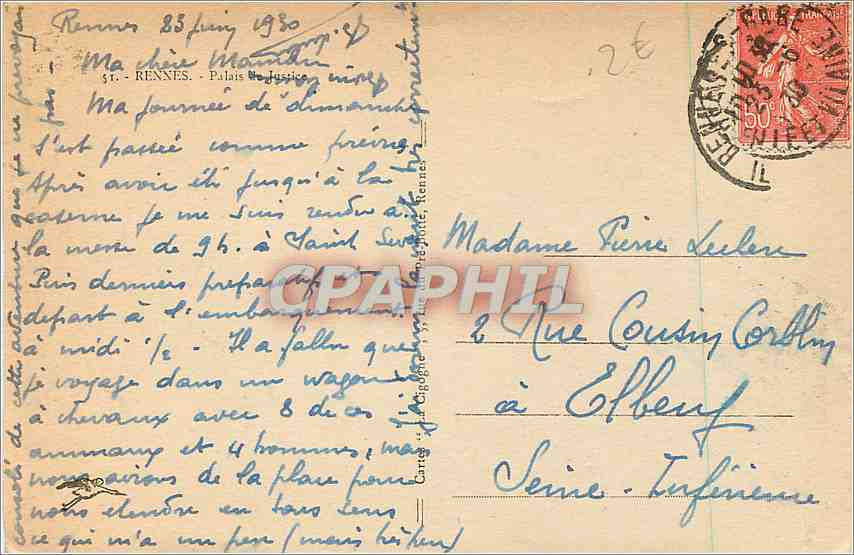 Rennes 23 juin 1930
Ma chère Maman
51. - RENNES. - Palais de Justice
Ma journée de dimanche
s'est passée comme prévue
Après avoir été jusqu'à la
caserne je me suis rendu à
la messe de 9h. à Saint
Puis derniers preparatifs et
depart à l'embarquement
à midi 1/2 - Il a fallu que
je voyage dans un wagon
à chevaux avec 8 de ces
animaux et 4 hommes, mais
nous avions de la place pour
nous etendre en tous sens
ce qui m'a un peu (mais très peu)
consolé de cette aventure que je ne prevoyais
pas -
Cartes "La Cigogne", Rennes
2€
50c
RENNES-GARE
23
30
ILLE ET VILAINE
Madame Pierre Leclerc
2 Rue Cousin Corblin
à Elbeuf
Seine-Inférieure
CPAPHIL